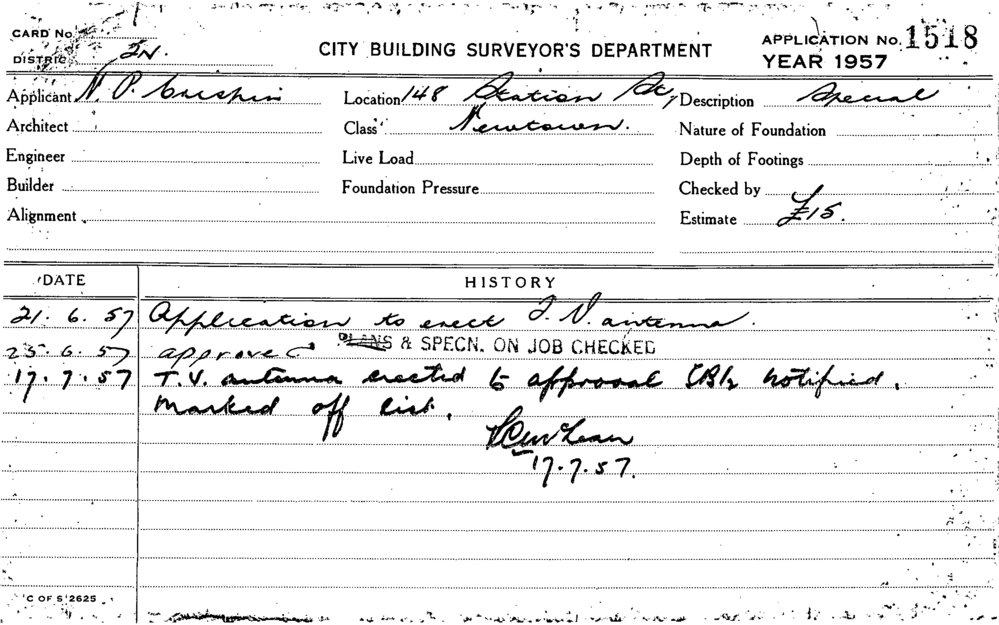 CARD No.
DISTRICT IN.
CITY BUILDING SURVEYOR'S DEPARTMENT
APPLICATION No. 1518
YEAR 1957
Applicant N. P. Crespin Location 148 Station St, Description Special
Architect Class Newtown. Nature of Foundation
Engineer Live Load Depth of Footings
Builder Foundation Pressure Checked by
Alignment Estimate £15.
DATE HISTORY
21. 6. 57 Application to erect T. V. antenna.
25. 6. 57 approved PLANS & SPECN. ON JOB CHECKED
17. 7. 57 T.V. antenna erected to approval notified.
Marked off list.
17. 7. 57.
C OF S 2625